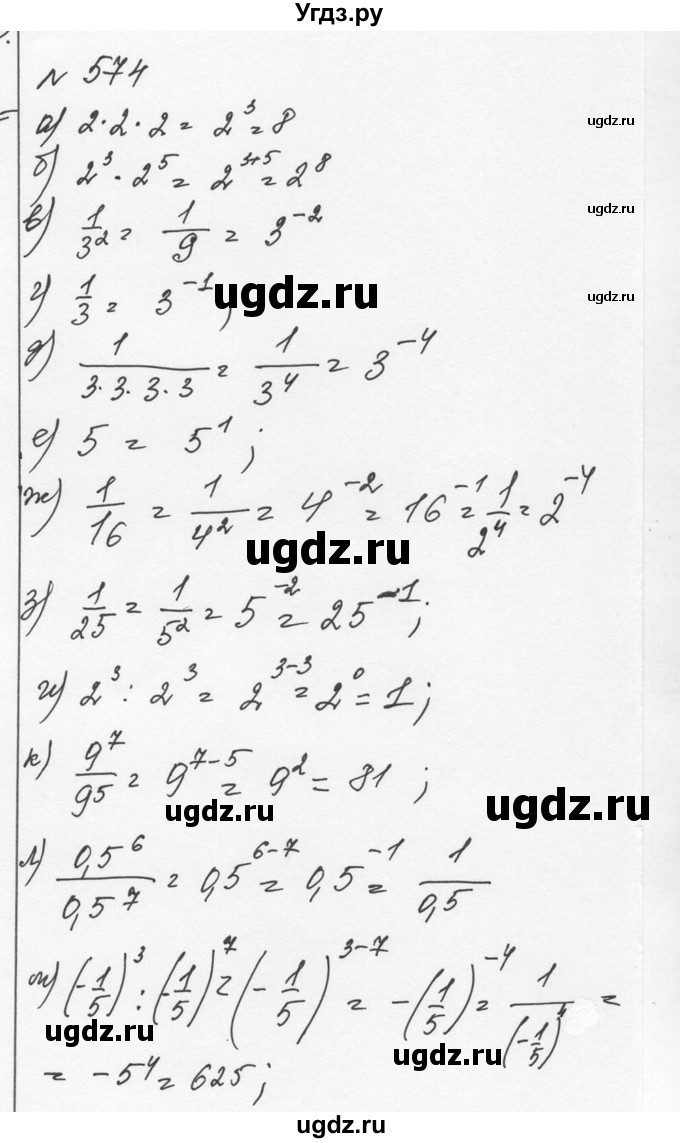 Угдз.ру
№ 574
а) 2·2·2 = 2³ = 8
ugdz.ru
б) 2³·2⁵ = 2³⁺⁵ = 2⁸
в) 1/3² = 1/9 = 3⁻²
ugdz.ru
г) 1/3 = 3⁻¹;
ugdz.ru
ugdz.ru
д) 1/(3·3·3·3) = 1/3⁴ = 3⁻⁴
е) 5 = 5¹;
ж) 1/16 = 1/4² = 4⁻² = 16⁻¹ = 1/2⁴ = 2⁻⁴
ugdz.ru
з) 1/25 = 1/5² = 5⁻² = 25⁻¹;
и) 2³ : 2³ = 2³⁻³ = 2⁰ = 1;
к) 9⁷/9⁵ = 9⁷⁻⁵ = 9² = 81;
ugdz.ru
ugdz.ru
л) 0,5⁶/0,5⁷ = 0,5⁶⁻⁷ = 0,5⁻¹ = 1/0,5
м) (-1/5)³ : (-1/5)⁷ = (-1/5)³⁻⁷ = -(1/5)⁻⁴ = 1/(-1/5)⁴ =
ugdz.ru
ugdz.ru
= -5⁴ = 625;
ugdz.ru